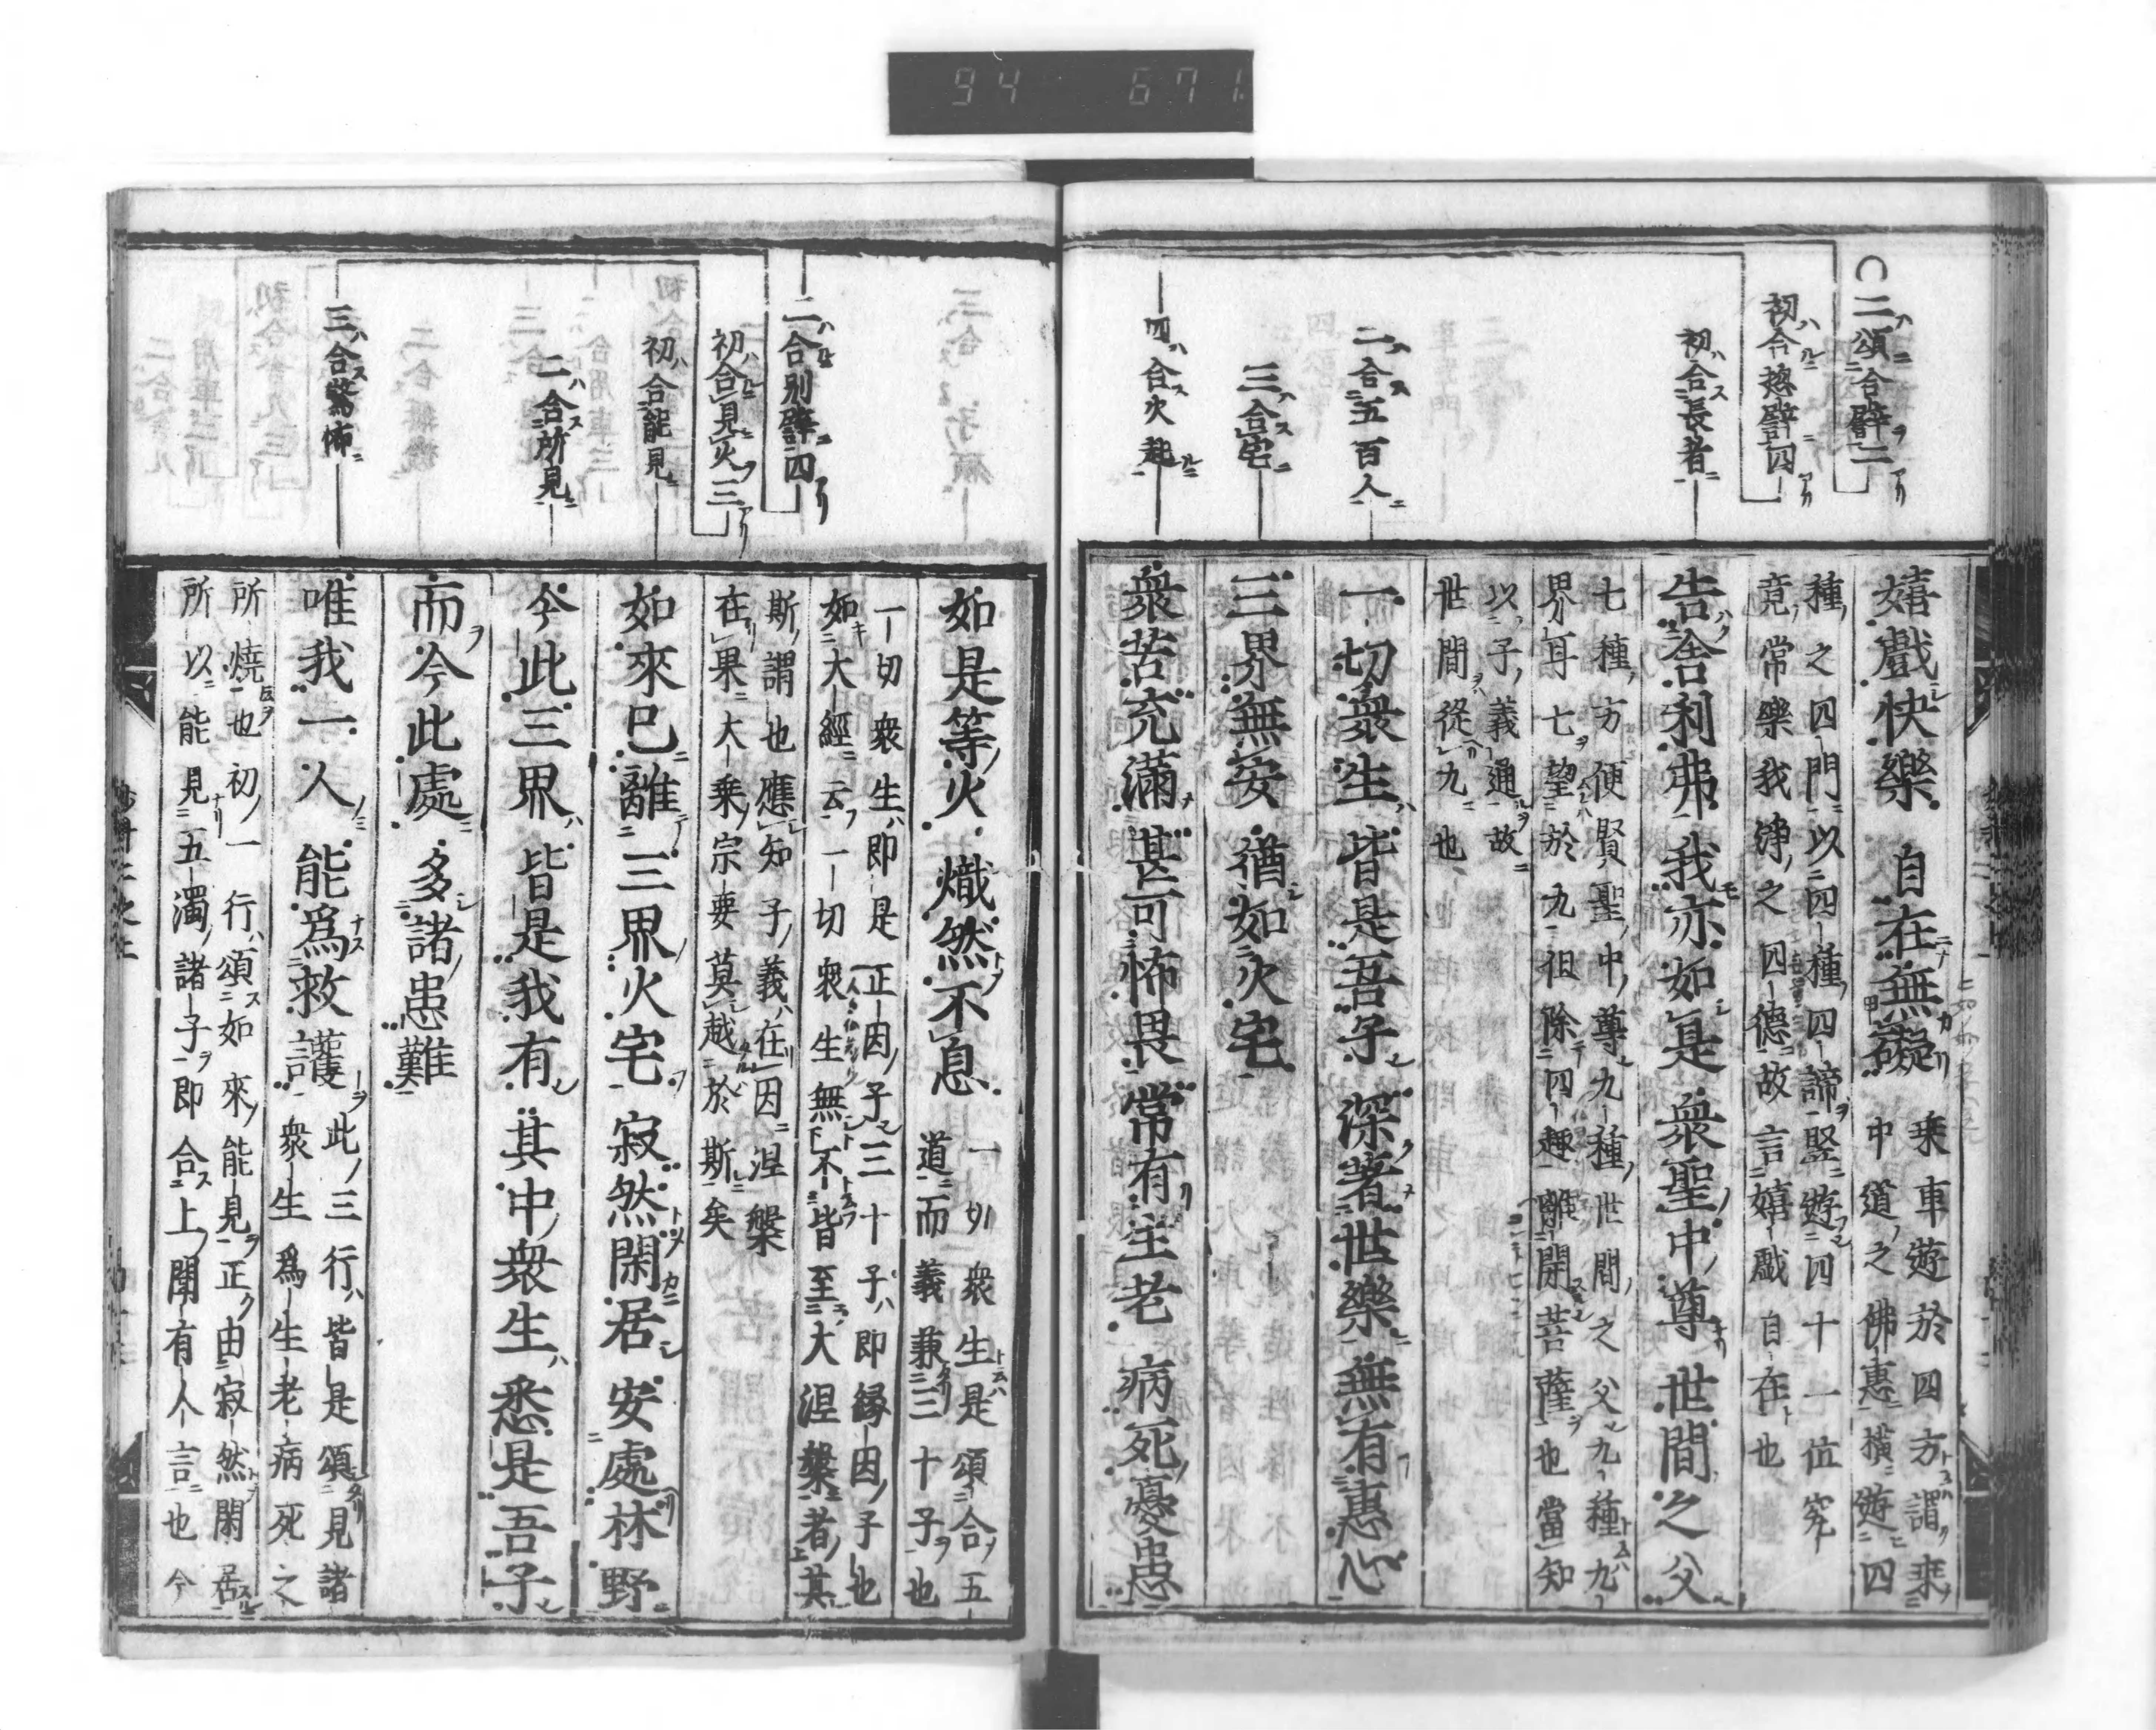 94 671
○二頌合譬二
初合惣譬四
初合長者
二合五百人
三合宅
四合火起
嬉戲快樂 自在無礙
乘車遊於四方謂乘
中道之佛惠橫遊四
種之四門以四種四諦竪遊四十一位究
竟常樂我淨之四德故言嬉戲自在也
告舍利弗 我亦如是 衆聖中尊 世間之父
七種方便賢聖中尊九種世間之父九種九
界耳七望於九但除四趣離開菩薩也當知
以子義通故
世間從九也
一切衆生 皆是吾子 深著世樂 無有惠心
三界無安 猶如火宅
衆苦充滿 甚可怖畏 常有生老 病死憂患
二合別譬四
初合見火三
初合能見
二合所見
三合驚怖
如是等火 熾然不息
一切衆生是頌合五
道而義兼三十子也
一切衆生即是正因子三十子即緣因子也
如大經云一切衆生無不皆至大涅槃者其
斯謂也應知子義在因涅槃
在果大乘宗要莫越於斯矣
如來已離 三界火宅 寂然閑居 安處林野
今此三界 皆是我有 其中衆生 悉是吾子
而今此處 多諸患難
唯我一人 能爲救護
此三行皆是頌見諸
衆生爲生老病死之
所燒也初一行頌如來能見正由寂然閑居
所以能見五濁諸子即合上聞有人言也今